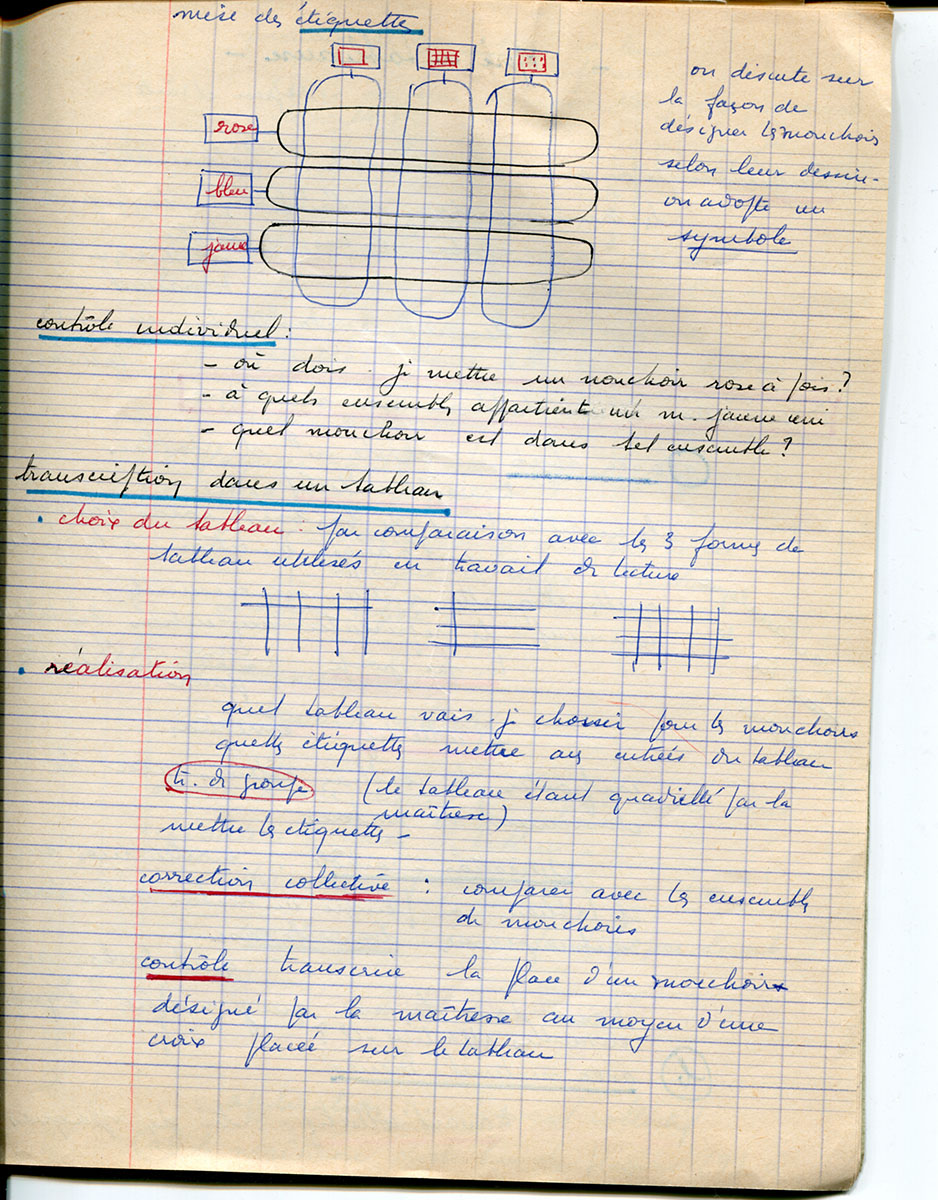 mise des étiquettes
rose
bleu
jaune
on discute sur
la façon de
désigner les mouchoirs
selon leur dessin -
on adopte un
symbole
contrôle individuel :
- où dois-je mettre un mouchoir rose à pois ?
- à quels ensembles appartient un m. jaune uni
- quel mouchoir est dans tel ensemble ?
transcription dans un tableau
• choix du tableau : par comparaison avec les 3 formes de
tableau utilisés en travail de lecture
• réalisation
quel tableau vais-je choisir pour les mouchoirs
quelles étiquettes mettre aux entrées du tableau
tr. de groupe (le tableau étant quadrillé par la
maîtresse)
mettre les étiquettes -
correction collective : comparer avec les ensembles
de mouchoirs
contrôle transcrire la place d'un mouchoir
désigné par la maîtresse au moyen d'une
croix placée sur le tableau